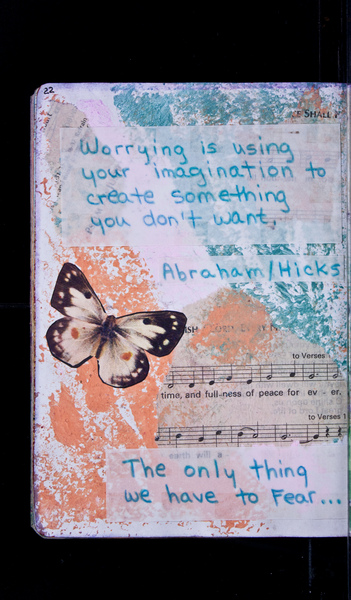 22
SHALL
Worrying is using
your imagination to
create something
you don't want.
Abraham/Hicks
to Verses
time, and full-ness of peace for ev - er.
to Verses
earth will a
The only thing
we have to Fear...